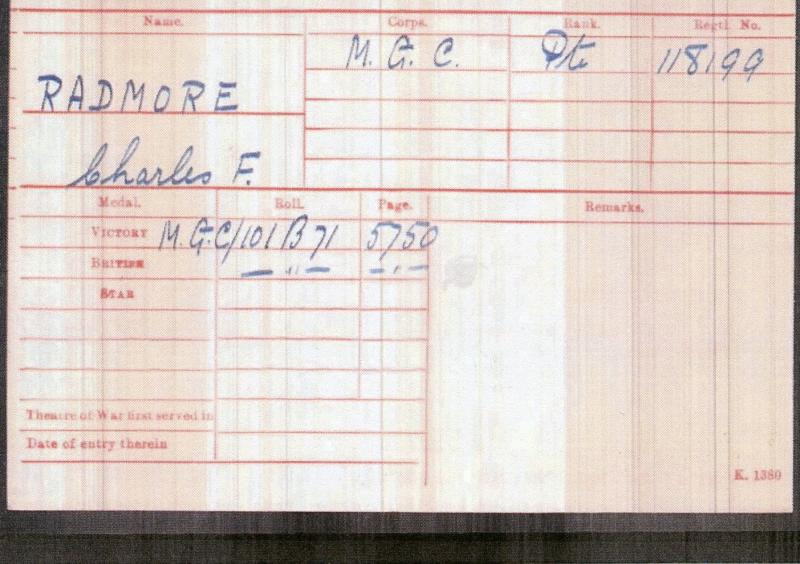 Name. Corps. Rank. Regtl. No.
M. G. C. Pte 118199
RADMORE
Charles F.
Medal. Roll. Page. Remarks.
VICTORY M.G.C/101 B 71 5750
BRITISH — " — — " —
STAR
Theatre of War first served in
Date of entry therein
K. 1380